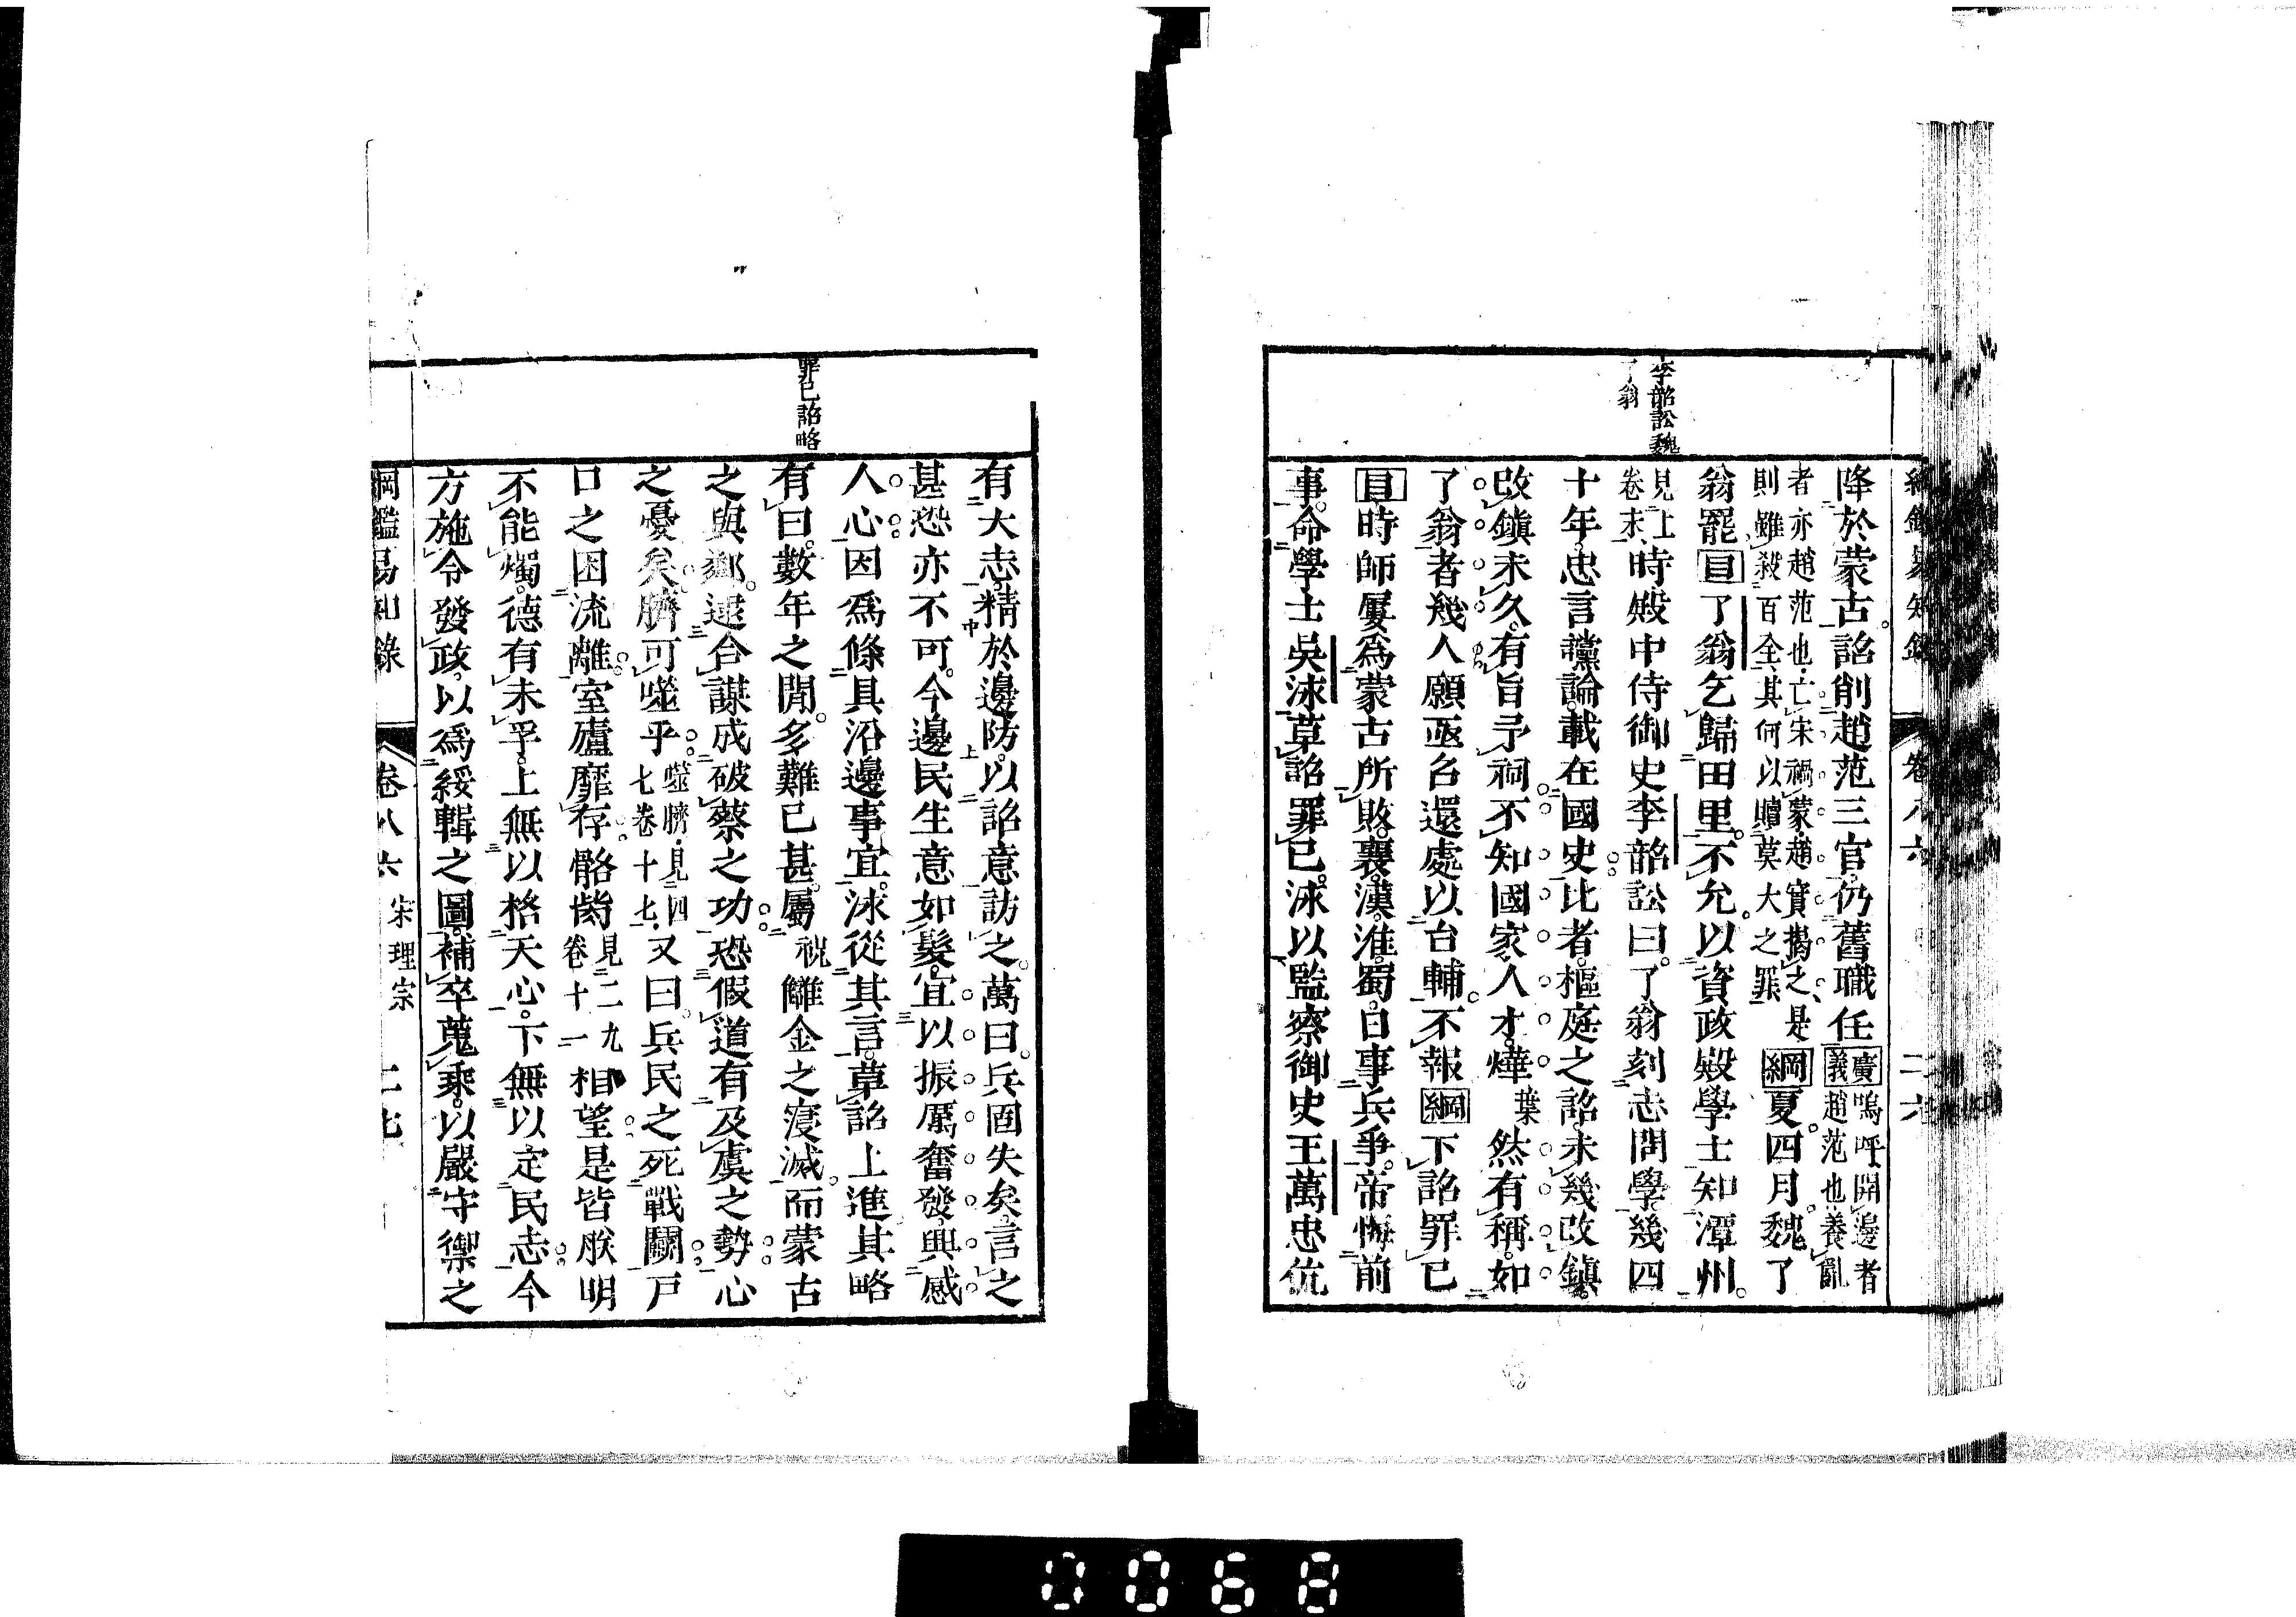 李韶訟魏
了翁
降於蒙古。詔削趙范三官。仍舊職任廣義嗚呼開邊者趙范也養亂
者亦趙范也亡宋禍蒙趙實搗之是則雖殺百全其何以贖莫大之罪綱夏四月魏了
翁罷目了翁乞歸田里。不允。以資政殿學士知潭州。
見上卷末時殿中侍御史李韶訟曰。了翁刻志問學。幾四
十年。忠言讜論。載在國史。比者。樞庭之詔。未幾改鎮。
改鎮未久。有旨予祠。不知國家人才。燁葉然有稱。如
了翁者幾人。願亟召還。處以台輔。不報綱下詔罪己
目時師屢爲蒙古所敗。襄。漢。淮。蜀。日事兵爭。帝悔前
事。命學士吳泳草詔罪己。泳以監察御史王萬忠伉
罪己詔略
有大志。精於邊防。以詔意訪之。萬曰。兵固失矣。言之
甚恐亦不可。今邊民生意如髮。宜以振厲奮發。興感
人心。因爲條具沿邊事宜。泳從其言。草詔上進。其略
有曰。數年之閒。多難已甚。屬祝讎金之寖滅。而蒙古
之與鄰。逞合謀成破蔡之功。恐假道有及虞之勢。心
之憂矣。臍可噬乎。噬臍見四七卷十七又曰。兵民之死戰鬭。戶
口之困流離。室廬靡存。骼胔見二九卷十一相望。是皆朕明
不能燭。德有未孚。上無以格天心。下無以定民志。今
方施令發政。以爲綏輯之圖。補卒蒐乘。以嚴守禦之
綱鑑易知錄 卷八六 宋理宗 二七
0068